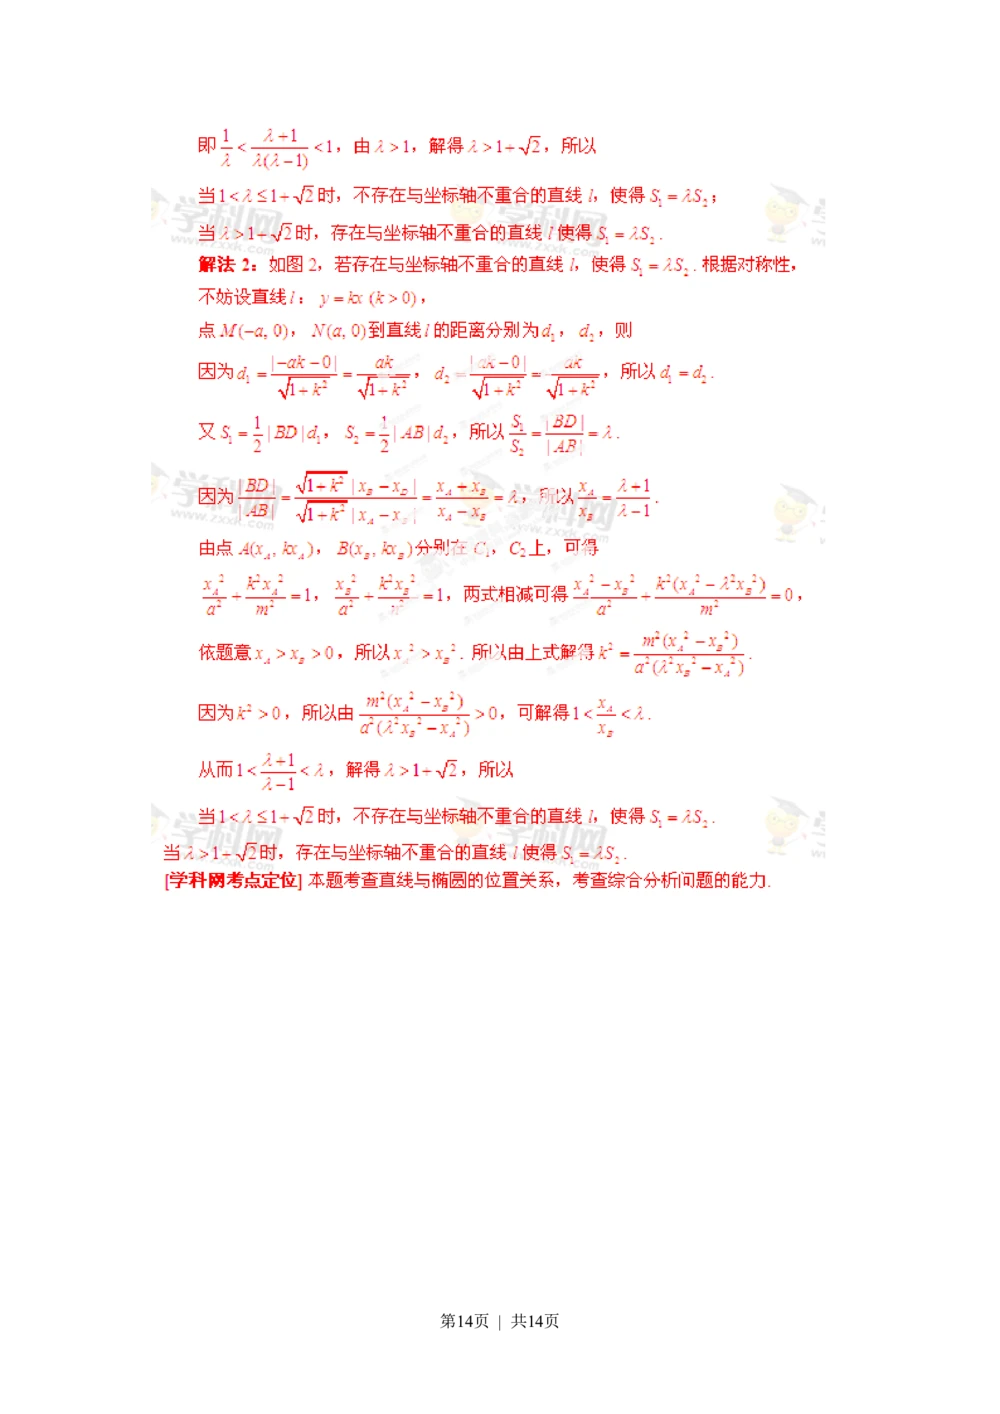 即 1/λ < (λ+1)/(λ(λ−1)) < 1，由 λ > 1，解得 λ > 1+√2，所以
当 1 < λ ≤ 1+√2 时，不存在与坐标轴不重合的直线 l，使得 S₁ = λS₂；
当 λ > 1+√2 时，存在与坐标轴不重合的直线 l 使得 S₁ = λS₂．
解法 2：如图 2，若存在与坐标轴不重合的直线 l，使得 S₁ = λS₂．根据对称性，
不妨设直线 l：y = kx (k > 0)，
点 M(−a, 0)，N(a, 0)到直线 l 的距离分别为 d₁，d₂，则
因为 d₁ = |−ak−0|/√(1+k²) = ak/√(1+k²)，d₂ = |ak−0|/√(1+k²) = ak/√(1+k²)，所以 d₁ = d₂．
又 S₁ = 1/2 |BD|d₁，S₂ = 1/2 |AB|d₂，所以 S₁/S₂ = |BD|/|AB| = λ．
因为 |BD|/|AB| = √(1+k²)|x_B − x_D|/(√(1+k²)|x_A − x_B|) = (x_A + x_B)/(x_A − x_B) = λ，所以 x_A/x_B = (λ+1)/(λ−1)．
由点 A(x_A, kx_A)，B(x_B, kx_B)分别在 C₁，C₂上，可得
x_A²/a² + k²x_A²/m² = 1，x_B²/a² + k²x_B²/n² = 1，两式相减可得 (x_A² − x_B²)/a² + k²(x_A² − λ²x_B²)/m² = 0，
依题意 x_A > x_B > 0，所以 x_A² > x_B²．所以由上式解得 k² = m²(x_A² − x_B²)/(a²(λ²x_B² − x_A²))．
因为 k² > 0，所以由 m²(x_A² − x_B²)/(a²(λ²x_B² − x_A²)) > 0，可解得 1 < x_A/x_B < λ．
从而 1 < (λ+1)/(λ−1) < λ，解得 λ > 1+√2，所以
当 1 < λ ≤ 1+√2 时，不存在与坐标轴不重合的直线 l，使得 S₁ = λS₂．
当 λ > 1+√2 时，存在与坐标轴不重合的直线 l 使得 S₁ = λS₂．
[学科网考点定位] 本题考查直线与椭圆的位置关系，考查综合分析问题的能力．
第14页 | 共14页